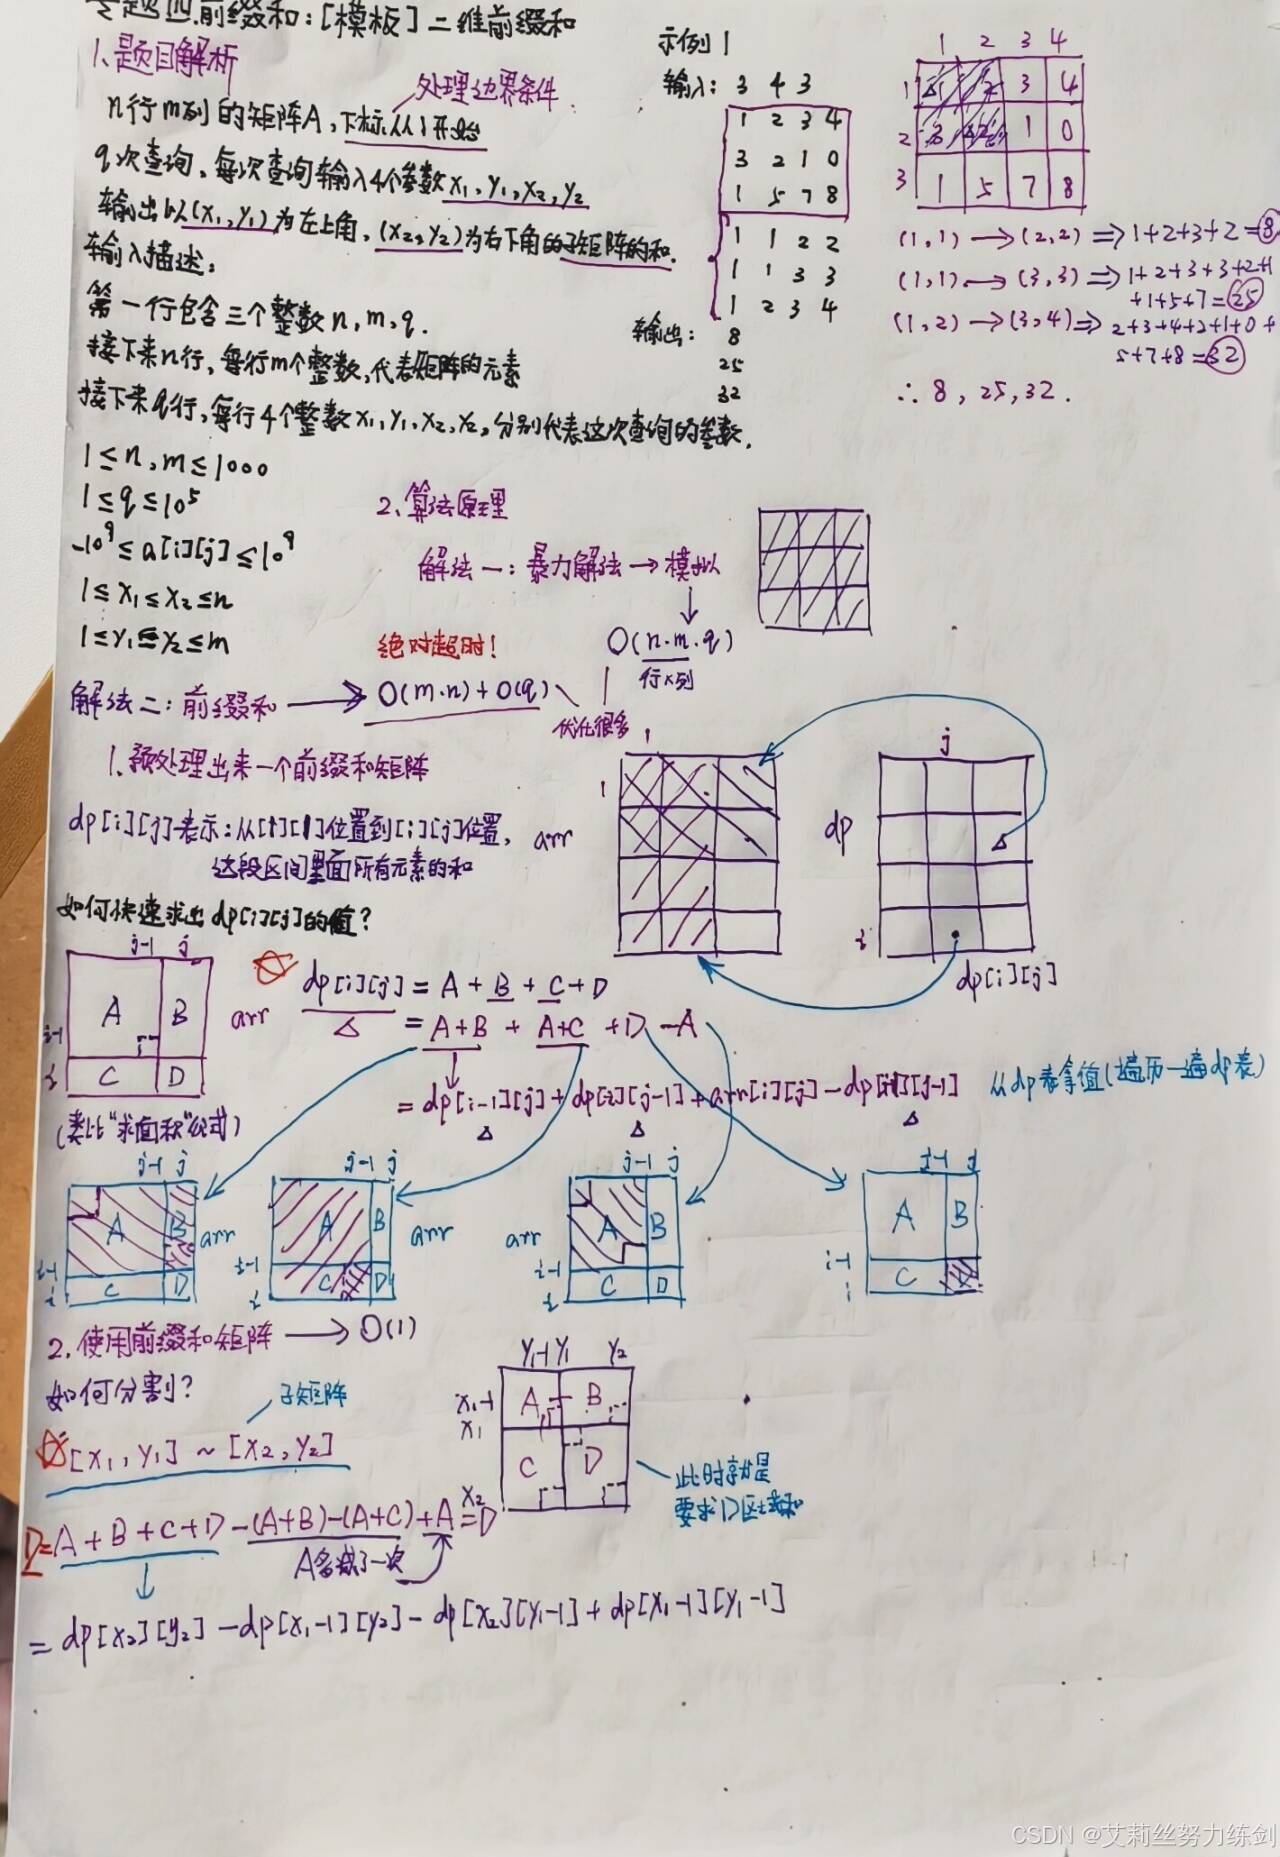 专题四.前缀和:[模板]二维前缀和
1.题目解析
处理边界条件
n行m列的矩阵A,下标从1开始
q次查询,每次查询输入4个参数x₁,y₁,x₂,y₂
输出以(x₁,y₁)为左上角,(x₂,y₂)为右下角的子矩阵的和.
输入描述:
第一行包含三个整数n,m,q.
接下来n行,每行m个整数,代表矩阵的元素
接下来q行,每行4个整数x₁,y₁,x₂,y₂,分别代表这次查询的参数.
1≤n,m≤1000
1≤q≤10⁵
-10⁹≤a[i][j]≤10⁹
1≤x₁≤x₂≤n
1≤y₁≤y₂≤m
示例1
输入: 3 4 3
1 2 3 4
3 2 1 0
1 5 7 8
1 1 2 2
1 1 3 3
1 2 3 4
输出: 8
25
32
1 2 3 4
1 1 2 3 4
2 3 2 1 0
3 1 5 7 8
(1,1)→(2,2)⇒1+2+3+2=8
(1,1)→(3,3)⇒1+2+3+3+2+1
+1+5+7=25
(1,2)→(3,4)⇒2+3+4+2+1+0+
5+7+8=32
∴8,25,32.
2.算法原理
解法一:暴力解法→模拟
绝对超时!
O(n·m·q)
行×列
解法二:前缀和→O(m·n)+O(q)
优化很多
1.预处理出来一个前缀和矩阵
dp[i][j]表示:从[1][1]位置到[i][j]位置,
这段区间里面所有元素的和
1
1
arr
j
dp
i
dp[i][j]
如何快速求出dp[i][j]的值?
j-1 j
A B
i-1
i C D
arr
(类比"求面积"公式)
dp[i][j]=A+B+C+D
=A+B+A+C+D-A
=dp[i-1][j]+dp[i][j-1]+arr[i][j]-dp[i-1][j-1]
从dp表拿值(遍历一遍dp表)
j-1 j
A B arr
i-1
i C D
j-1 j
A B arr
i-1
i C D
j-1 j
arr A B
i-1
i C D
j-1 j
A B
i-1
i C
2.使用前缀和矩阵→O(1)
如何分割?
子矩阵
[x₁,y₁]~[x₂,y₂]
y₁-1 y₁ y₂
x₁-1 A B
x₁
C D
x₂
此时就是
要求D区域和
D=A+B+C+D-(A+B)-(A+C)+A=D
A多减了一次
=dp[x₂][y₂]-dp[x₁-1][y₂]-dp[x₂][y₁-1]+dp[x₁-1][y₁-1]
CSDN @艾莉丝努力练剑